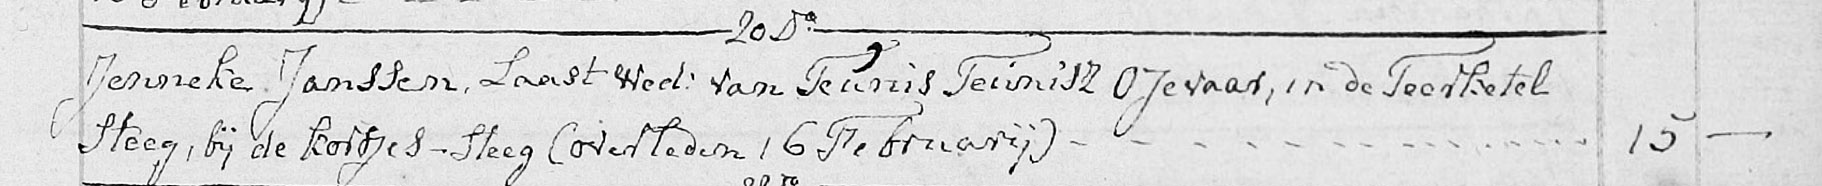 20 D.o
Jenneke Janssen, Laast Wed: van Teunis Teunisz Ojevaar, in de Teerketel
Steeg, bij de kortjes-Steeg (overleden 16 Februarij) - - - - - - 15 —